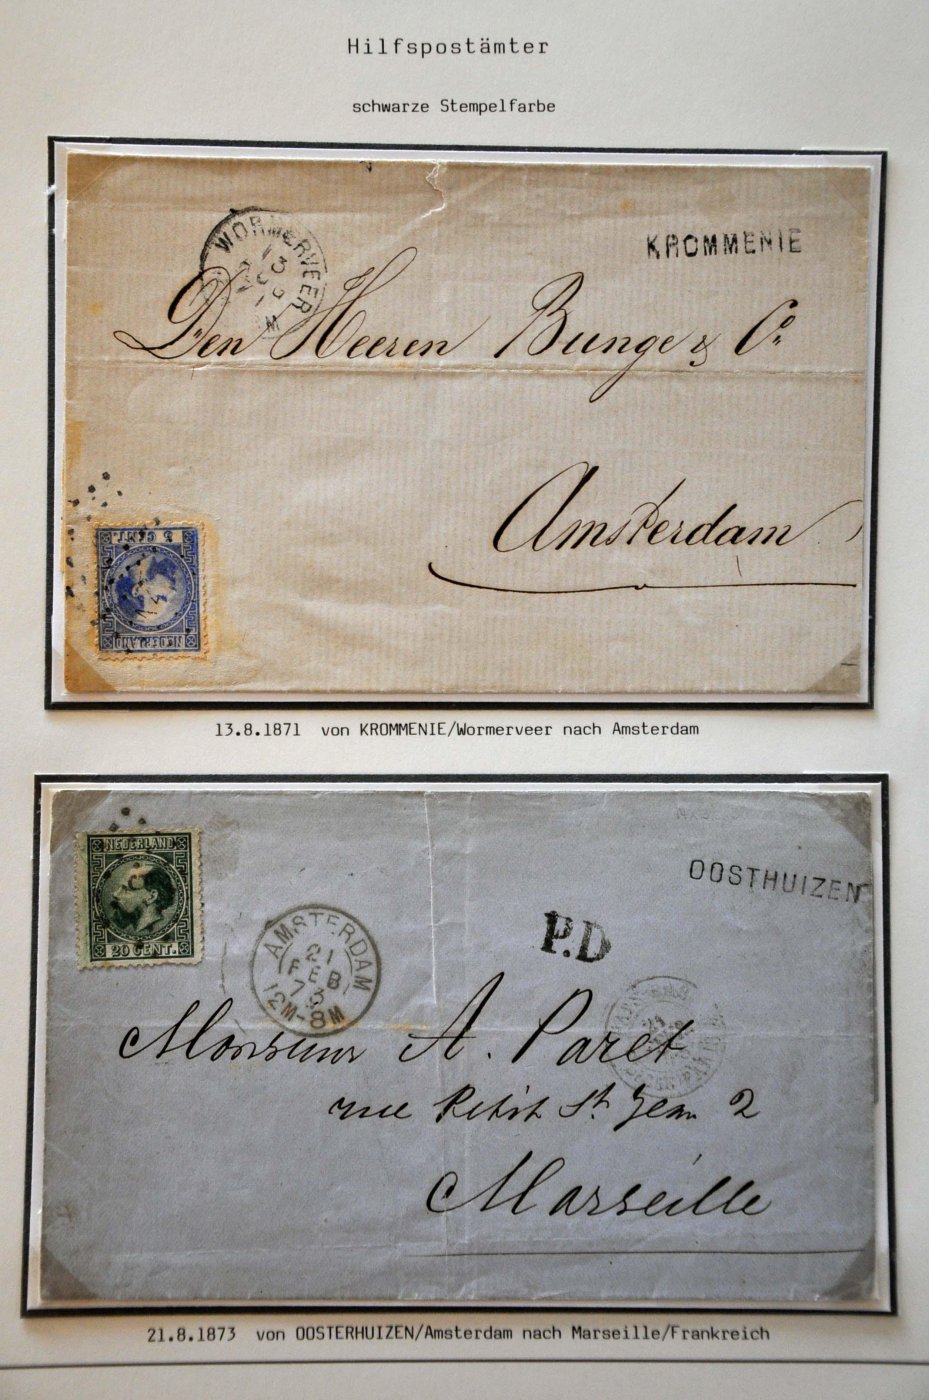 Hilfspostämter
schwarze Stempelfarbe
WORMERVEER
KROMMENIE
Den Heeren Bunge & Co
Amsterdam
5 CENT.
NEDERLAND
13.8.1871 von KROMMENIE/Wormerveer nach Amsterdam
NEDERLAND
20 CENT.
OOSTHUIZEN
AMSTERDAM
21
FEB
73
12M-8M
P.D
Monsieur A. Paret
rue Petit St Jean 2
Marseille
21.8.1873 von OOSTERHUIZEN/Amsterdam nach Marseille/Frankreich